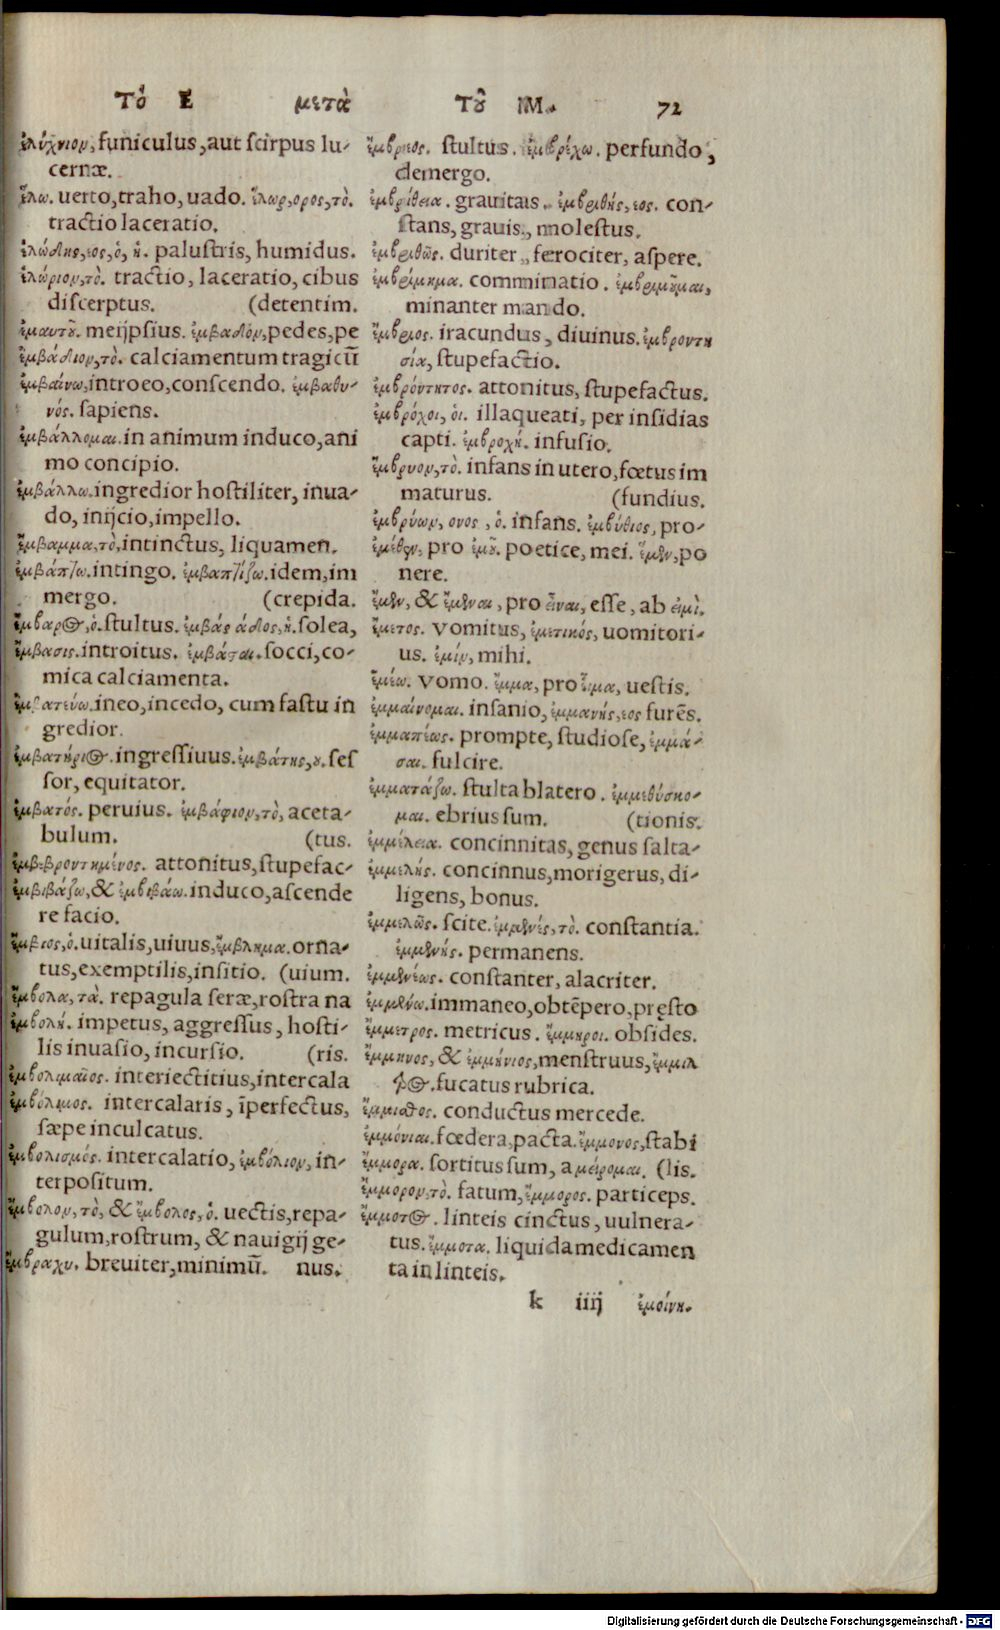 Τό Ε μετὰ Τοῦ Μ. 72
ἐλύχνιον, funiculus, aut scirpus lu-
cernæ.
ἕλω. uerto, traho, uado. ἕλωρ, ορος, τὸ.
tractio laceratio.
ἑλώδης, εος, ὁ, ἡ. palustris, humidus.
ἑλώριον, τὸ. tractio, laceratio, cibus
discerptus. (detentim.
ἐμαυτοῦ. meijpsius. ἐμβαδόν, pedes, pe
ἐμβάδιον, τὸ. calciamentum tragicū
ἐμβαίνω, introeo, conscendo. ἐμβαθυ-
νός. sapiens.
ἐμβάλλομαι. in animum induco, ani
mo concipio.
ἐμβάλλω. ingredior hostiliter, inua-
do, inijcio, impello.
ἔμβαμμα, τὸ, intinctus, liquamen.
ἐμβάπτω. intingo. ἐμβαπτίζω. idem, im
mergo. (crepida.
ἔμβαρος, ὁ. stultus. ἐμβάς άδος, ἡ. solea,
ἔμβασις. introitus. ἐμβάται. socci, co-
mica calciamenta.
ἐμβατεύω. ineo, incedo, cum fastu in
gredior.
ἐμβατήριος. ingressiuus. ἐμβάτης, ου. ses
sor, equitator.
ἐμβατός. peruius. ἐμβάφιον, τὸ, aceta-
bulum. (tus.
ἐμβεβροντημένος. attonitus, stupefac-
ἐμβιβάζω, & ἐμβιβάω. induco, ascende
re facio.
ἔμβιος, ὁ. uitalis, uiuus, ἔμβλημα. orna-
tus, exemptilis, insitio. (uium.
ἔμβολα, τὰ. repagula seræ, rostra na
ἐμβολή. impetus, aggressus, hosti-
lis inuasio, incursio. (ris.
ἐμβολιμαῖος. interiectitius, intercala
ἐμβόλιμος. intercalaris, īperfectus,
sæpe inculcatus.
ἐμβολισμός. intercalatio, ἐμβόλιον, in-
terpositum.
ἔμβολον, τὸ, & ἔμβολος, ὁ. uectis, repa-
gulum, rostrum, & nauigij ge-
ἔμβραχυ. breuiter, minimū. nus.
ἔμβρεος. stultus. ἐμβρέχω. perfundo,
demergo.
ἐμβρίθεια. grauitas. ἐμβριθής, εος. con-
stans, grauis, molestus.
ἐμβριθῶς. duriter, ferociter, aspere.
ἐμβρίμημα. comminatio. ἐμβριμοῦμαι,
minanter mando.
ἔμβριος. iracundus, diuinus. ἐμβροντη
σία, stupefactio.
ἐμβρόντητος. attonitus, stupefactus.
ἐμβρόχοι, ὁι. illaqueati, per insidias
capti. ἐμβροχή. infusio.
ἔμβρυον, τὸ. infans in utero, fœtus im
maturus. (fundius.
ἐμβρύων, ονος, ὁ. infans. ἐμβύθιος, pro-
ἐμέθεν, pro ἐμοῦ. poetice, mei. ἔμεν, po
nere.
ἔμεν, & ἔμεναι, pro εἶναι, esse, ab εἰμὶ.
ἔμετος. vomitus, ἐμετικός, uomitori-
us. ἐμίν, mihi.
ἐμέω. vomo. ἔμμα, pro εἷμα, uestis.
ἐμμαίνομαι. insanio, ἐμμανής, εος furēs.
ἐμμαπέως. prompte, studiose, ἐμμά-
σαι. fulcire.
ἐμματάζω. stulta blatero. ἐμμεθύσκο-
μαι. ebrius sum. (tionis.
ἐμμέλεια. concinnitas, genus salta-
ἐμμελής. concinnus, morigerus, di-
ligens, bonus.
ἐμμελῶς. scite. ἐμμενές, τὸ. constantia.
ἐμμενής. permanens.
ἐμμενέως. constanter, alacriter.
ἐμμένω. immaneo, obtēpero, pręsto
ἔμμετρος. metricus. ἔμμηροι. obsides.
ἔμμηνος, & ἐμμήνιος, menstruus, ἔμμιλ
τος. fucatus rubrica.
ἔμμισθος. conductus mercede.
ἐμμόνιαι. fœdera, pacta. ἔμμονος, stabi
ἔμμορα. sortitus sum, a μείρομαι. (lis.
ἔμμορον, τὸ. fatum, ἔμμορος. particeps.
ἔμμοτος. linteis cinctus, uulnera-
tus. ἔμμοτα. liquida medicamen
ta in linteis.
k iiij ἐμοίνη.
Digitalisierung gefördert durch die Deutsche Forschungsgemeinschaft - DFG